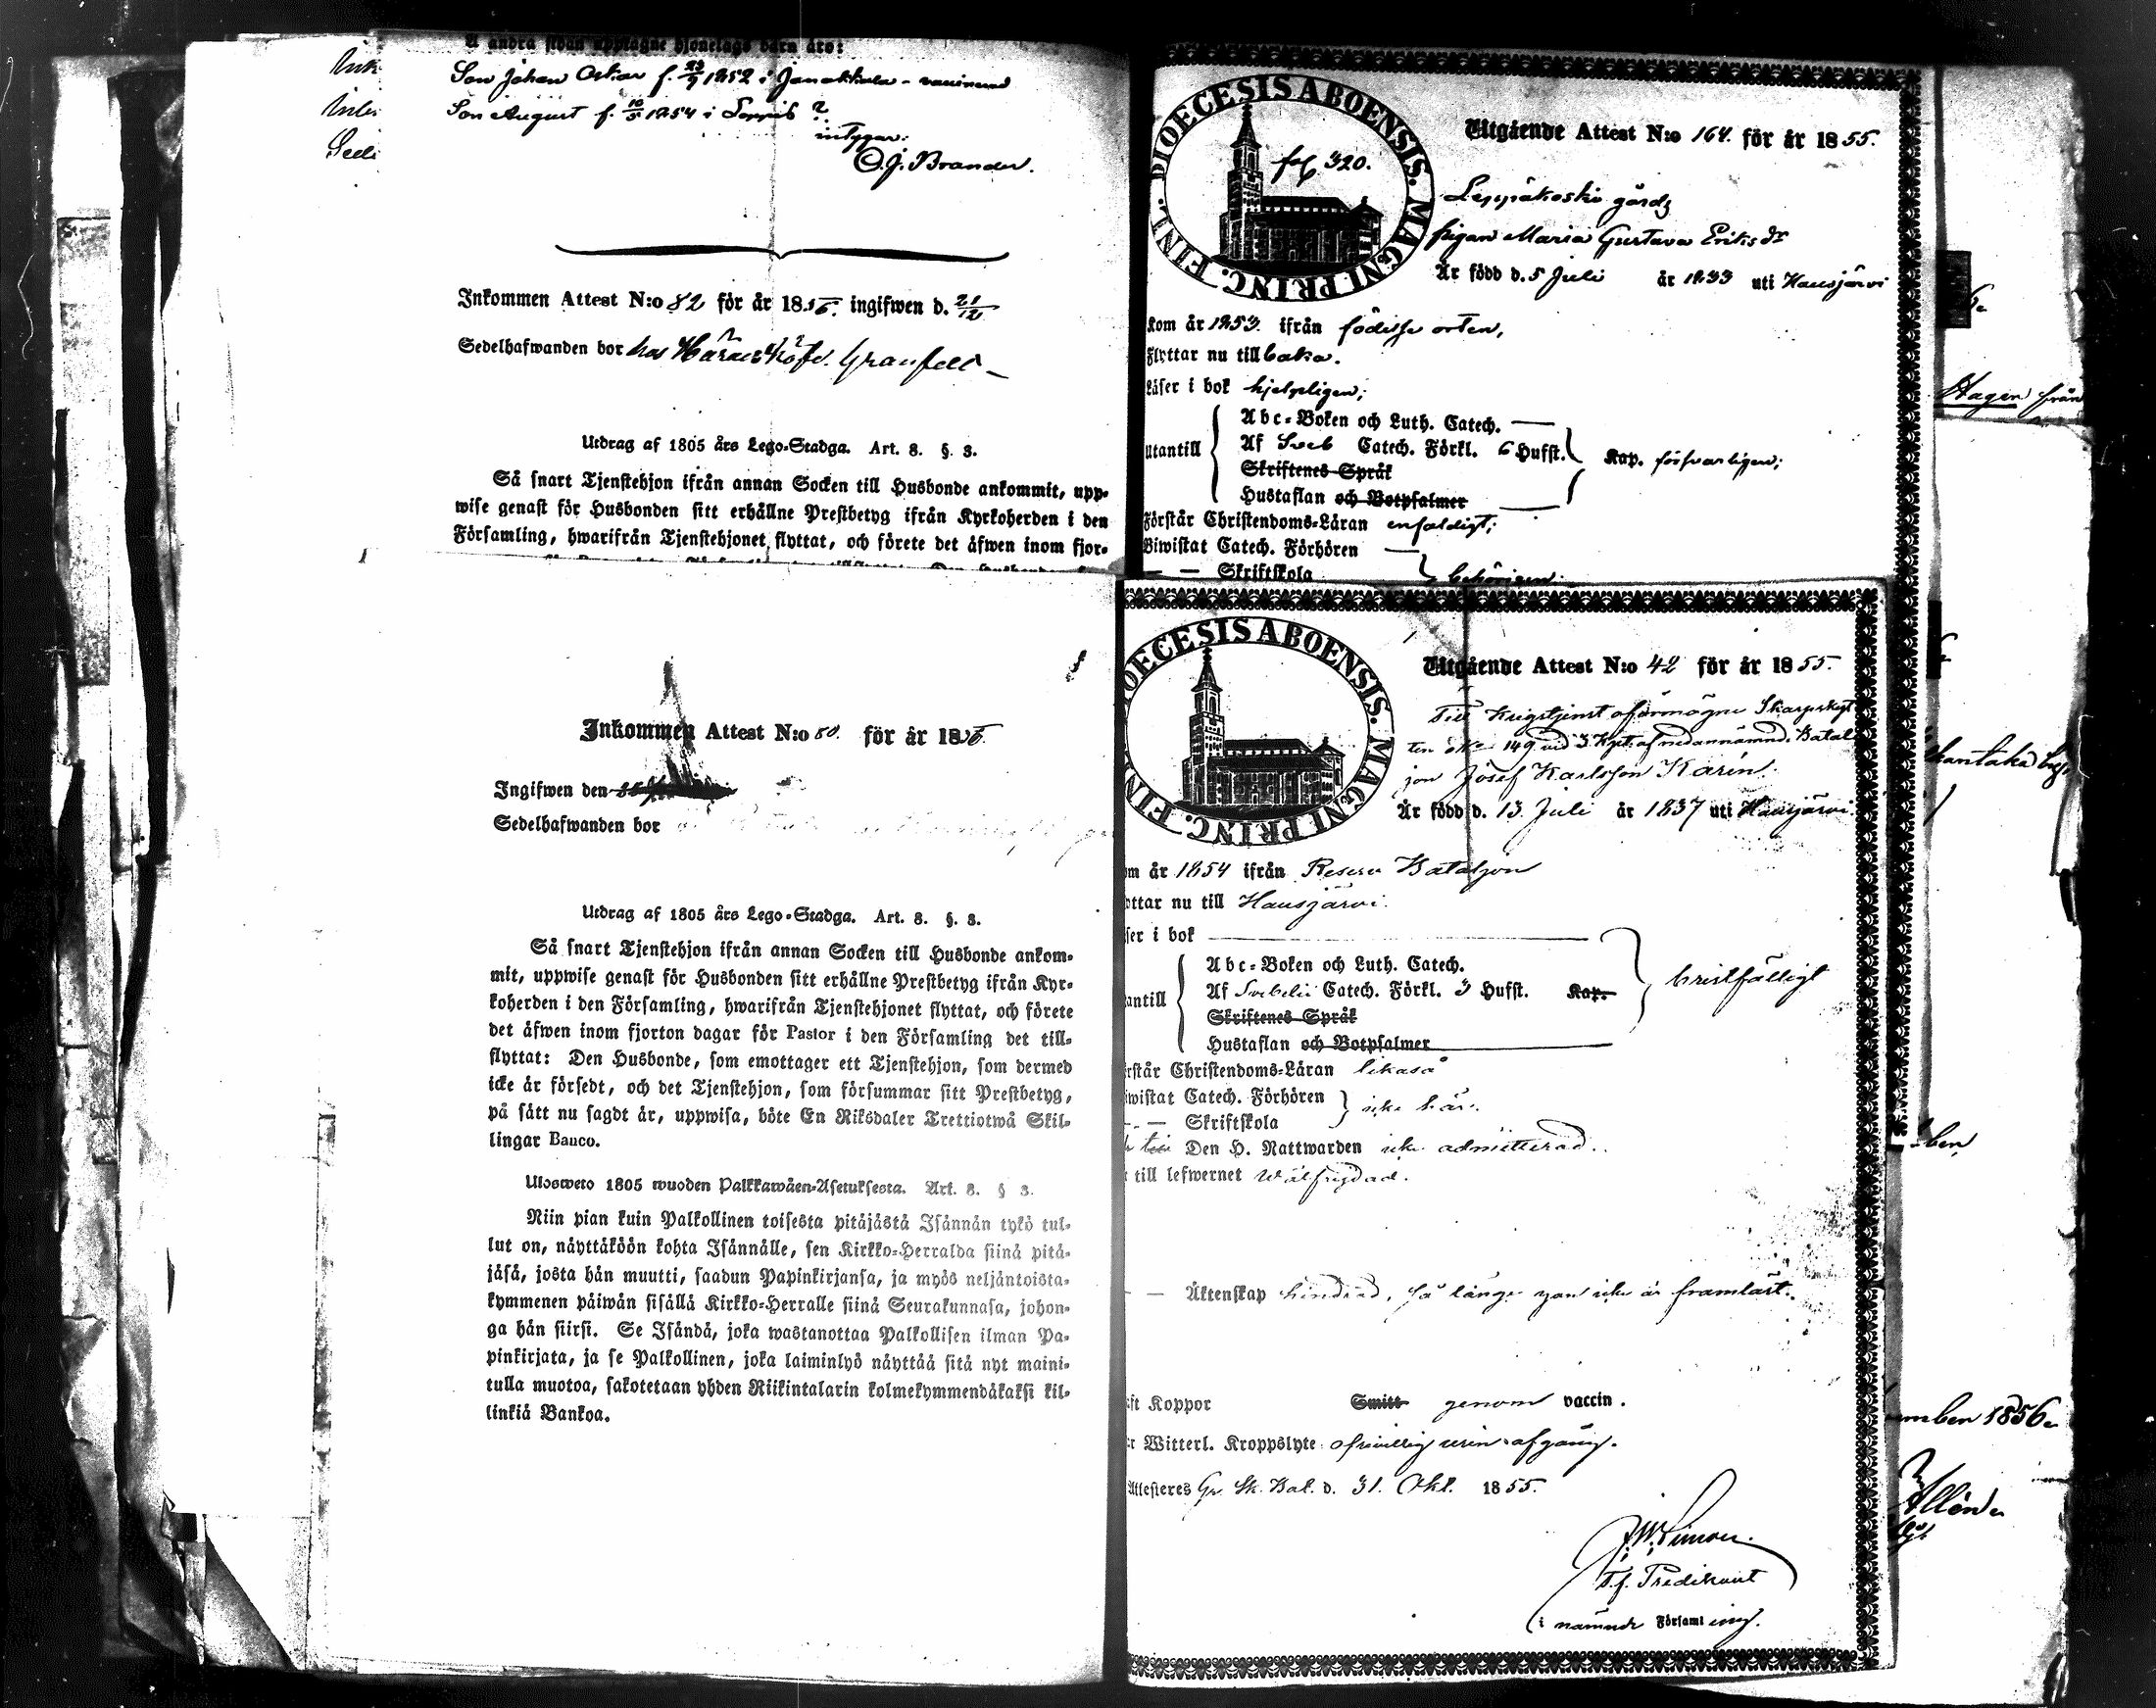 Å andra sidan upptagne hjonelags barn äro:
Son Johan Oskar f. 23/9 1852 i Janakkala - vaccinerad
Son August f. 10/5 1854 i
intygar:
C. J. Brander.
Inkommen Attest N:o 82 för år 1856. ingifwen d. 21/12
Sedelhafwanden bor hos
Utdrag af 1805 års Lego-Stadga. Art. 8. §. 3.
Så snart Tjenstehjon ifrån annan Socken till Husbonde ankommit, upp-
wise genast för Husbonden sitt erhållne Prestbetyg ifrån Kyrkoherden i den
Församling, hwarifrån Tjenstehjonet flyttat, och förete det äfwen inom fjor-
Inkommen Attest N:o 80. för år 1856.
Ingifwen den
Sedelhafwanden bor
Utdrag af 1805 års Lego-Stadga. Art. 8. §. 3.
Så snart Tjenstehjon ifrån annan Socken till Husbonde ankom-
mit, uppwise genast för Husbonden sitt erhållne Prestbetyg ifrån Kyr-
koherden i den Församling, hwarifrån Tjenstehjonet flyttat, och förete
det äfwen inom fjorton dagar för Pastor i den Församling det till-
flyttat: Den Husbonde, som emottager ett Tjenstehjon, som dermed
icke är försedt, och det Tjenstehjon, som försummar sitt Prestbetyg,
på sätt nu sagdt är, uppwisa, böte En Riksdaler Trettiotwå Skil-
lingar Banco.
Ulosweto 1805 wuoden Palkkawäen-Asetuksesta. Art. 8. § 3.
Niin pian kuin Palkollinen toisesta pitäjästä Isännän tykö tul-
lut on, näyttäköön kohta Isännälle, sen Kirkko-Herralda siinä pitä-
jäsä, josta hän muutti, saadun Papinkirjansa, ja myös neljäntoista-
kymmenen päiwän sisällä Kirkko-Herralle siinä Seurakunnasa, johon-
ga hän siirsi. Se Isändä, joka wastanottaa Palkollisen ilman Pa-
pinkirjata, ja se Palkollinen, joka laiminlyö näyttää sitä nyt maini-
tulla muotoa, sakotetaan yhden Riikintalarin kolmekymmendäkaksi kil-
linkiä Bankoa.
DIOECESIS ABOENSIS. MAGNI PRINC. FINL.
fol. 320.
Utgående Attest N:o 164. för år 1855.
Leppäkoski gårds
pigan Maria Gustava Eriks dr
Är född d. 5 Juli år 1833 uti Hausjärvi
Kom år 1853. ifrån födelse orten,
Flyttar nu till baka.
Läser i bok hjelpligen;
Utantill
Abc-Boken och Luth. Catech.
Af Sveb Catech. Förkl. 6 Hufst. Kap. försvarligen;
Skriftenes Språk
Hustaflan och Botpsalmer
Förstår Christendoms-Läran enfaldigt;
Biwistat Catech. Förhören
— — Skriftskola behörigen
OECESIS ABOENSIS. MAGNI PRINC. FIN
Utgående Attest N:o 42 för år 1855.
Till Krigstjenst oförmögne Skarpskyt
ten No 149 vid 3 Kpt. af nedannämnd. Batal
jon Josef Karlsson Karin.
Är född d. 13 Juli år 1837 uti Hausjärvi.
om år 1854 ifrån Reserv Bataljon
yttar nu till Hausjärvi.
ser i bok
antill
Abc-Boken och Luth. Catech.
Af Svebelii Catech. Förkl. 3 Hufst. Kap. bristfälligt
Skriftenes Språk
Hustaflan och Botpsalmer
rstår Christendoms-Läran likaså
iwistat Catech. Förhören
— — Skriftskola icke här.
Den H. Nattwarden icke admitterad.
till lefwernet wälfrejdad.
— — Äktenskap hindrad, så länge han icke är framläst.
ft Koppor Smitt genom vaccin.
r Witterl. Kroppslyte ofrivillig urin-afgång.
Attesteres Gr. Sk. Bat. d. 31. Okt. 1855.
T.f. Predikant
i nämnde Församling.
Hagen från
ember 1856